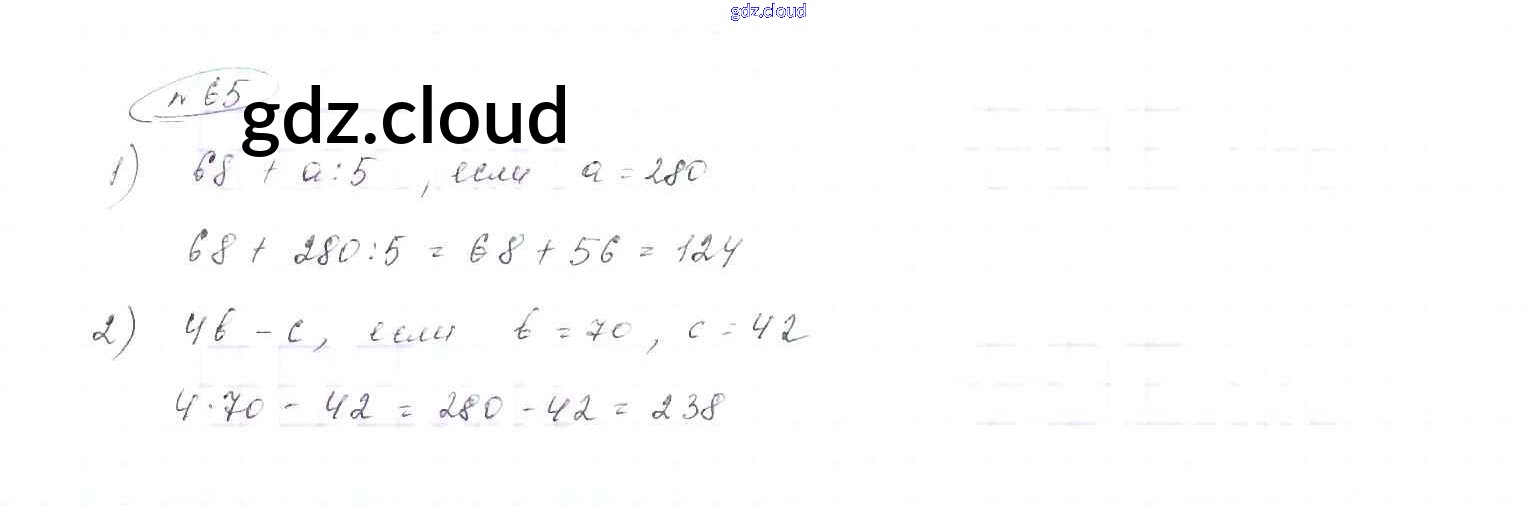 gdz.cloud
№ 65
gdz.cloud
1) 68 + a : 5 , если a = 280
68 + 280 : 5 = 68 + 56 = 124
2) 4b - c, если b = 70 , c = 42
4 · 70 - 42 = 280 - 42 = 238